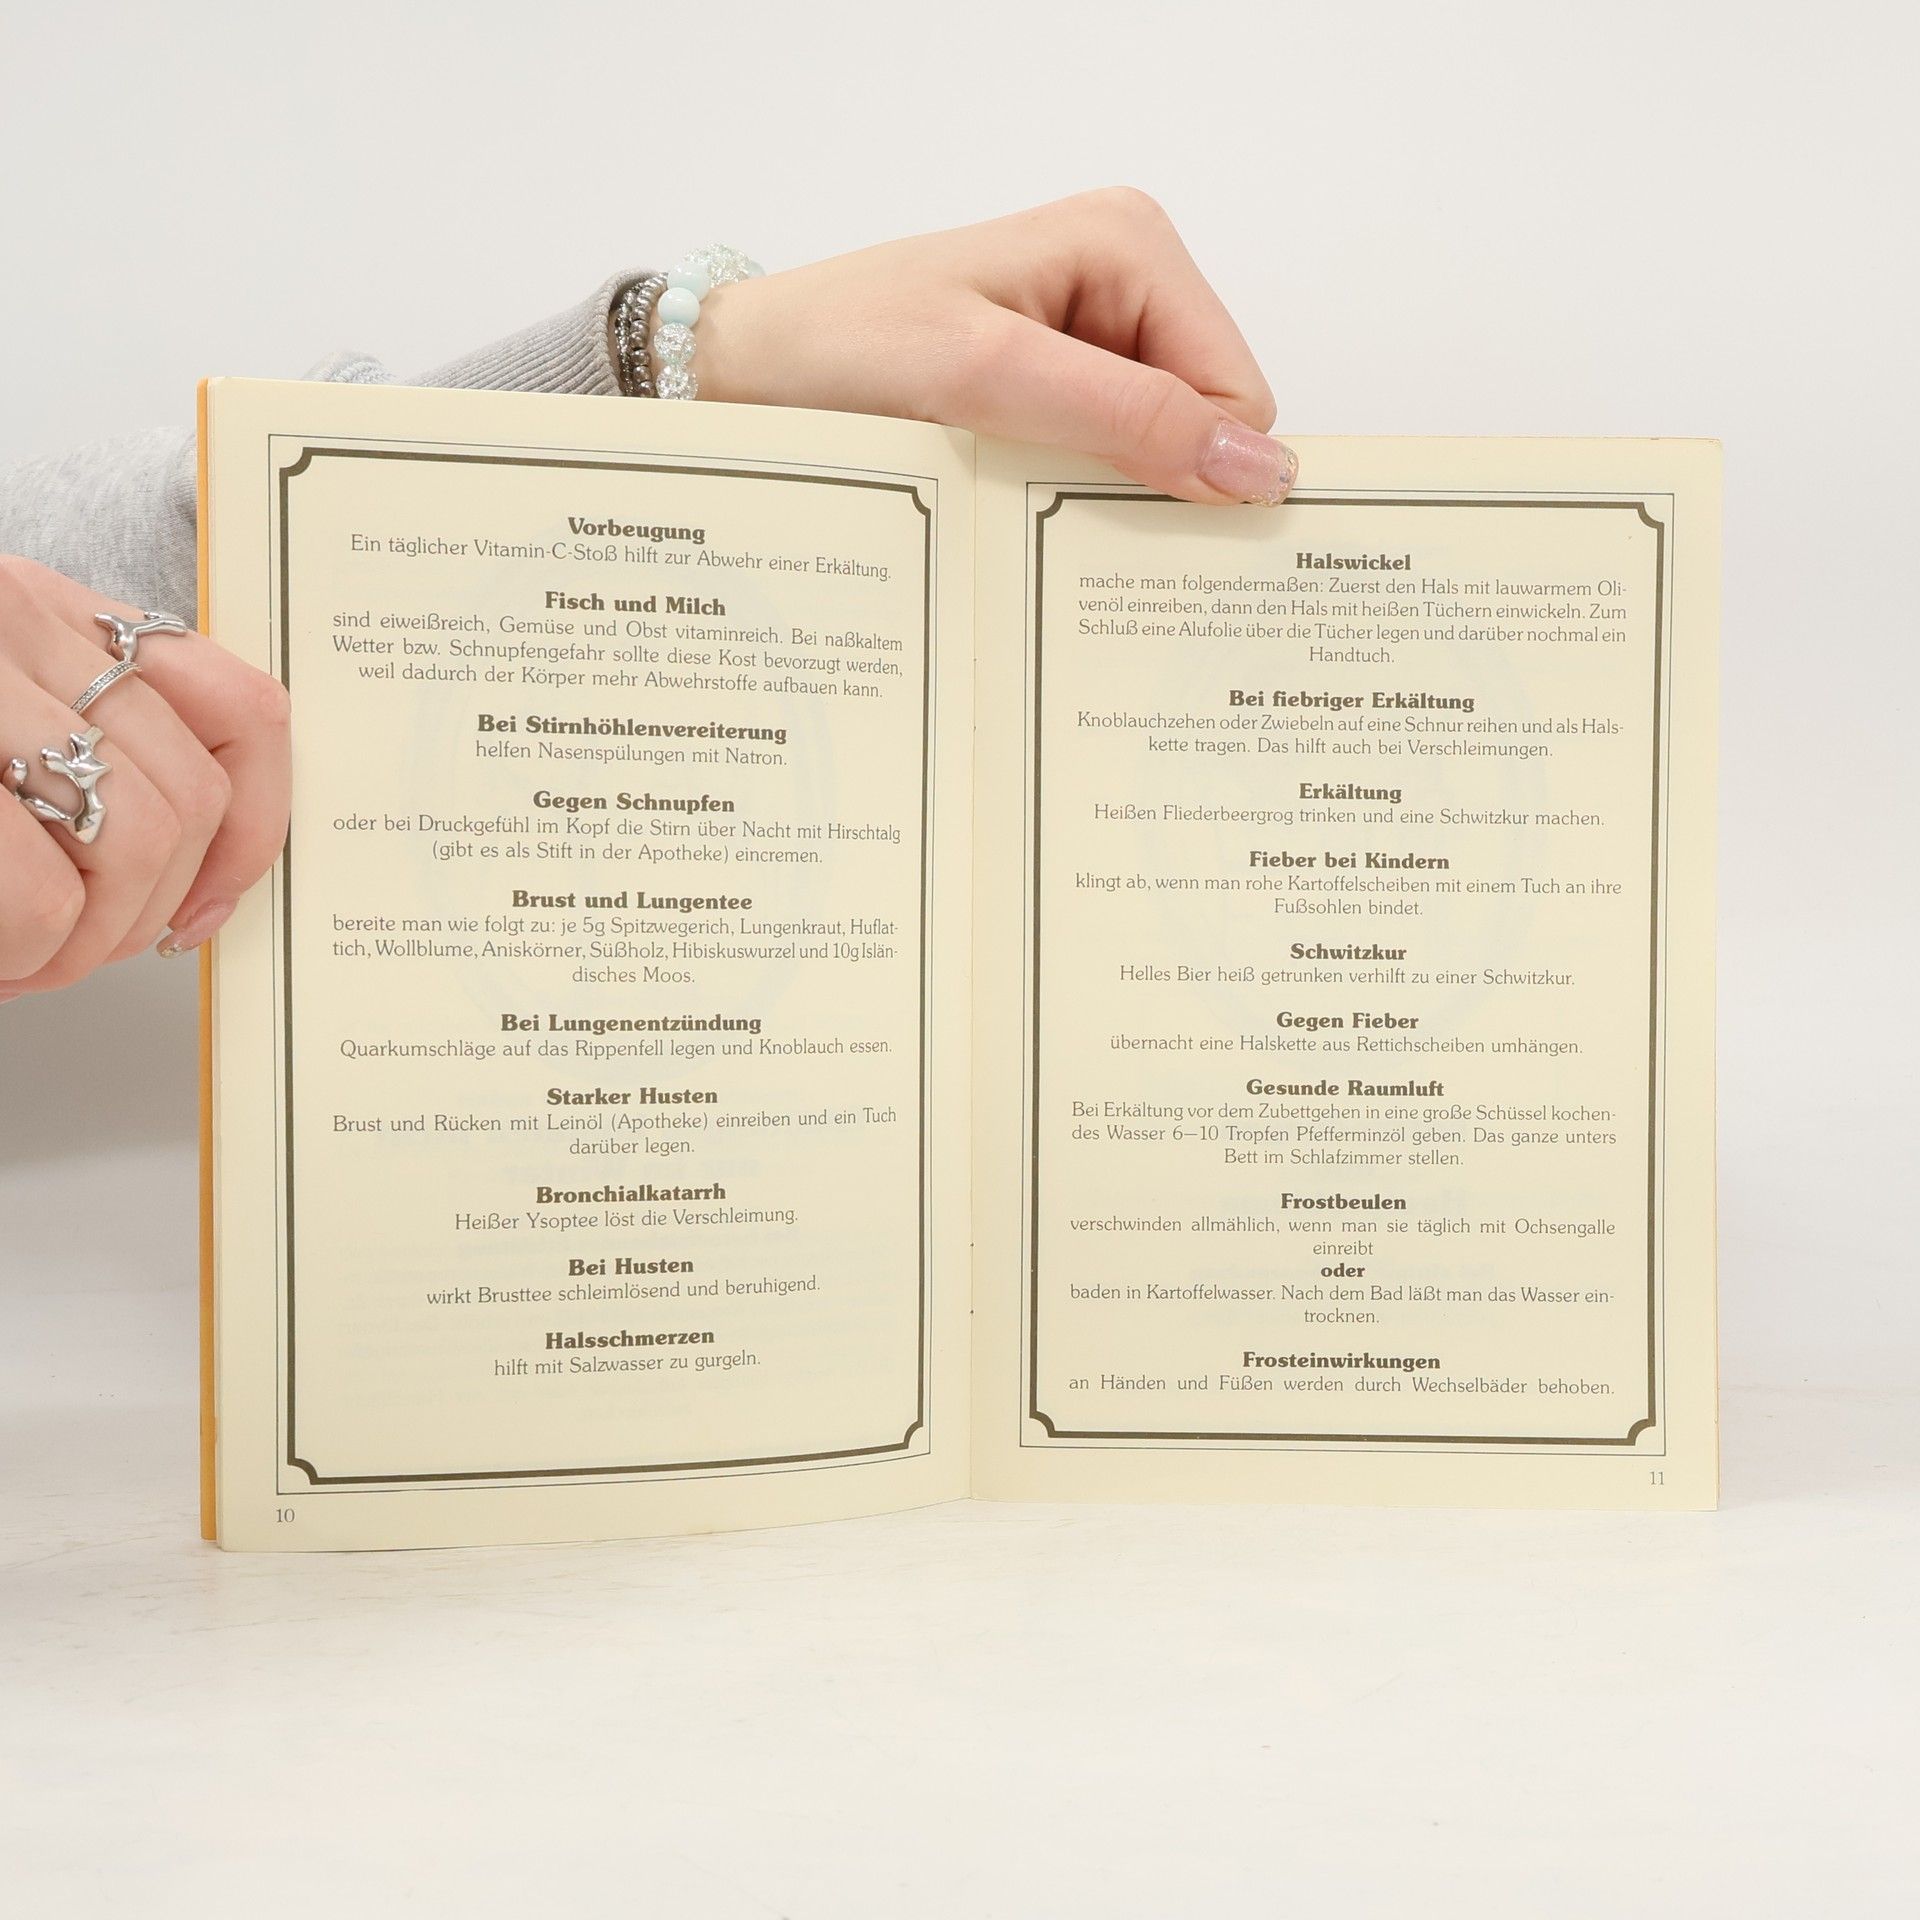 Vorbeugung
Ein täglicher Vitamin-C-Stoß hilft zur Abwehr einer Erkältung.
Fisch und Milch
sind eiweißreich, Gemüse und Obst vitaminreich. Bei naßkaltem
Wetter bzw. Schnupfengefahr sollte diese Kost bevorzugt werden,
weil dadurch der Körper mehr Abwehrstoffe aufbauen kann.
Bei Stirnhöhlenvereiterung
helfen Nasenspülungen mit Natron.
Gegen Schnupfen
oder bei Druckgefühl im Kopf die Stirn über Nacht mit Hirschtalg
(gibt es als Stift in der Apotheke) eincremen.
Brust und Lungentee
bereite man wie folgt zu: je 5g Spitzwegerich, Lungenkraut, Huflat-
tich, Wollblume, Aniskörner, Süßholz, Hibiskuswurzel und 10g Islän-
disches Moos.
Bei Lungenentzündung
Quarkumschläge auf das Rippenfell legen und Knoblauch essen.
Starker Husten
Brust und Rücken mit Leinöl (Apotheke) einreiben und ein Tuch
darüber legen.
Bronchialkatarrh
Heißer Ysoptee löst die Verschleimung.
Bei Husten
wirkt Brusttee schleimlösend und beruhigend.
Halsschmerzen
hilft mit Salzwasser zu gurgeln.
10
Halswickel
mache man folgendermaßen: Zuerst den Hals mit lauwarmem Oli-
venöl einreiben, dann den Hals mit heißen Tüchern einwickeln. Zum
Schluß eine Alufolie über die Tücher legen und darüber nochmal ein
Handtuch.
Bei fiebriger Erkältung
Knoblauchzehen oder Zwiebeln auf eine Schnur reihen und als Hals-
kette tragen. Das hilft auch bei Verschleimungen.
Erkältung
Heißen Fliederbeergrog trinken und eine Schwitzkur machen.
Fieber bei Kindern
klingt ab, wenn man rohe Kartoffelscheiben mit einem Tuch an ihre
Fußsohlen bindet.
Schwitzkur
Helles Bier heiß getrunken verhilft zu einer Schwitzkur.
Gegen Fieber
übernacht eine Halskette aus Rettichscheiben umhängen.
Gesunde Raumluft
Bei Erkältung vor dem Zubettgehen in eine große Schüssel kochen-
des Wasser 6—10 Tropfen Pfefferminzöl geben. Das ganze unters
Bett im Schlafzimmer stellen.
Frostbeulen
verschwinden allmählich, wenn man sie täglich mit Ochsengalle
einreibt
oder
baden in Kartoffelwasser. Nach dem Bad läßt man das Wasser ein-
trocknen.
Frosteinwirkungen
an Händen und Füßen werden durch Wechselbäder behoben.
11